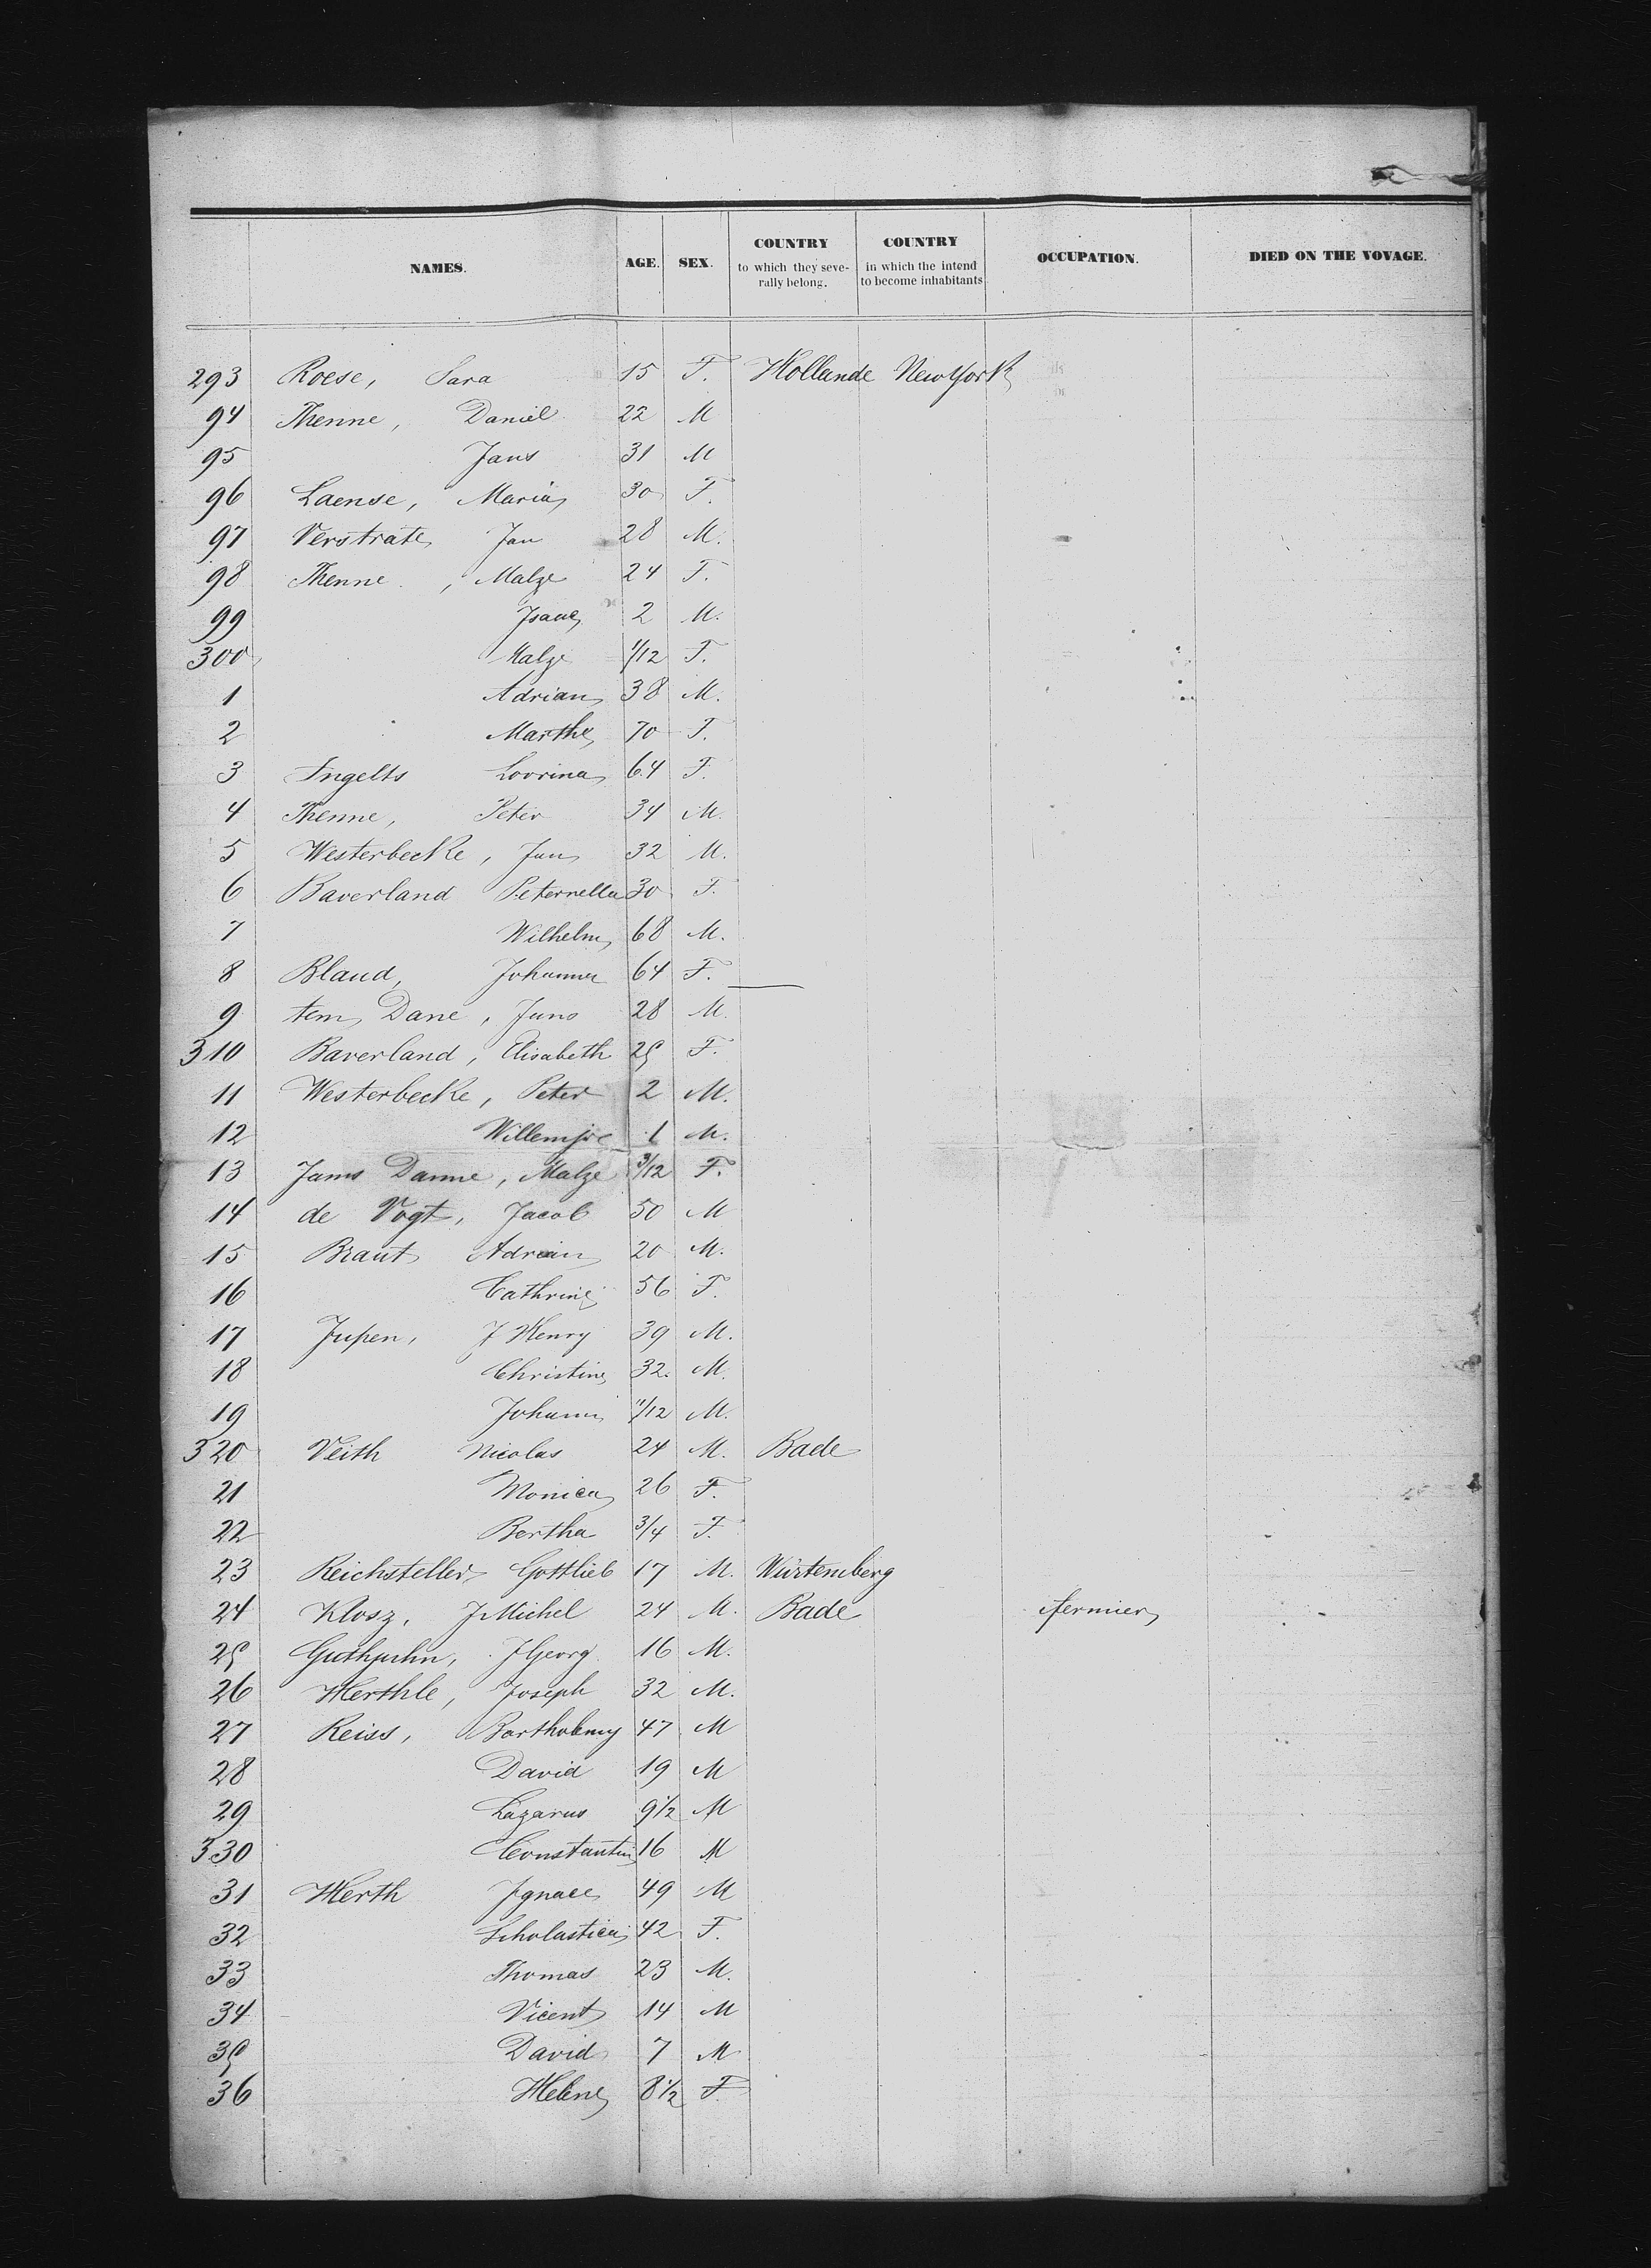 NAMES. AGE. SEX. COUNTRY to which they severally belong. COUNTRY in which the intend to become inhabitants OCCUPATION. DIED ON THE VOYAGE.
293 Roese, Sara 15 F. Hollande New York
94 Thenne, Daniel 22 M
95 Jans 31 M
96 Laense, Maria 30 F.
97 Verstrate Jan 28 M.
98 Thenne, Malze 24 F.
99 Isaac 2 M.
300 Malze 1/12 F.
1 Adrian 38 M.
2 Marthe 70 F.
3 Ingelts Lovrina 64 F.
4 Thenne, Peter 34 M.
5 Westerbecke, Jan 32 M.
6 Baverland Peternella 30 F.
7 Wilhelm 68 M.
8 Bland, Johanna 64 F.
9 tem Dane, Jans 28 M.
310 Baverland, Elisabeth 25 F.
11 Westerbecke, Peter 2 M.
12 1 M.
13 Jams Danne, Malze 3/12 F.
14 de Vogt, Jacob 50 M
15 Braut Adrian 20 M.
16 Cathrine 56 F.
17 Jupen, J Henry 39 M.
18 Christine 32. M.
19 Johann 11/12 M.
320 Veith Nicolas 24 M. Bade
21 Monica 26 F.
22 Bertha 3/4 F.
23 Reichsteller Gottlieb 17 M. Würtemberg
24 Klosz, J Michel 24 M. Bade fermier
25 Guthjuhn, J Georg 16 M.
26 Herthle, Joseph 32 M.
27 Reiss, Bartholemy 47 M
28 David 19 M
29 Lazarus 9 1/2 M
330 Constantin 16 M
31 Herth Ignace 49 M
32 Scholastica 42 F.
33 Thomas 23 M.
34 Vicent 14 M
35 David 7 M
36 Helene 8 1/2 F.